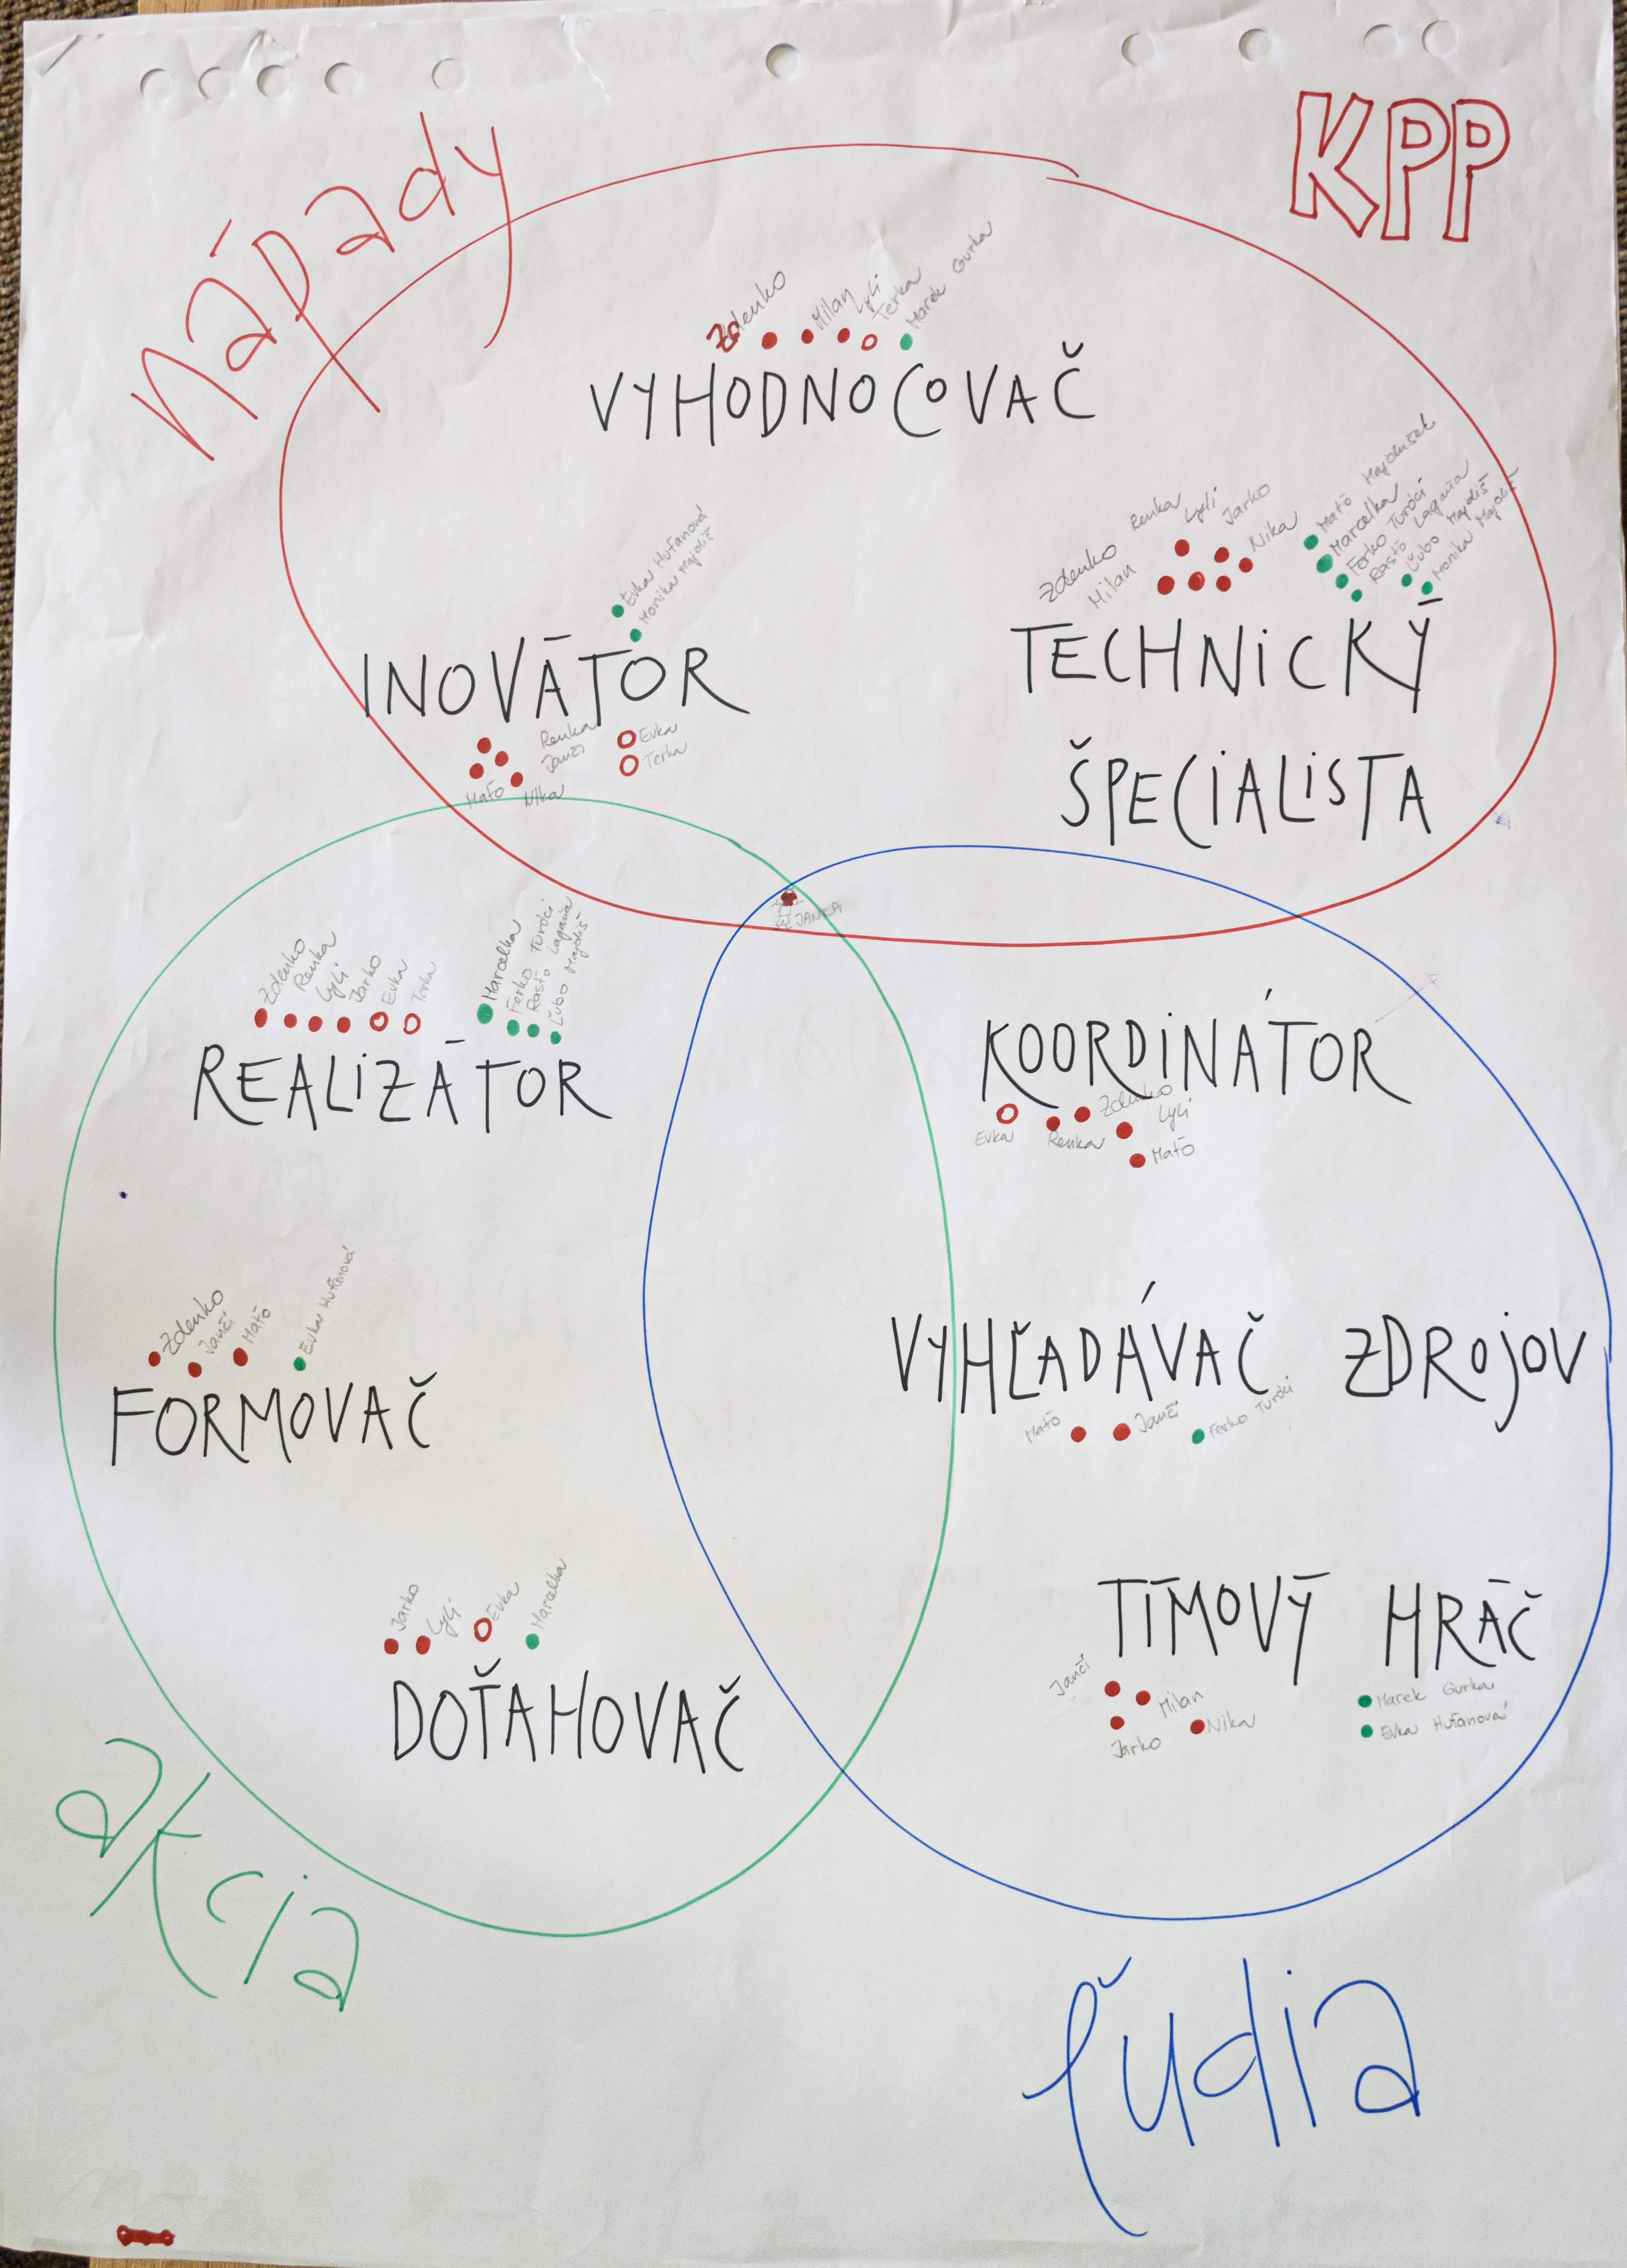 KPP
nápady
Zdenko
Milan
Lyli
Terka
Marek Gurka
VYHODNOCOVAČ
Evka Huťanová
Monika Majdiš
INOVÁTOR
Renka
Janči
Maťo
Nika
Evka
Terka
Zdenko
Milan
Renka
Lyli
Jarko
Nika
Maťo
Marcelka
Ferko Turóci
Rasťo Lagaňa
Ľubo Majdiš
Monika Majdiš
TECHNICKÝ
ŠPECIALISTA
JANKA
Zdenko
Renka
Lyli
Jarko
Evka
Terka
Marcelka
Ferko Turóci
Rasťo Lagaňa
Ľubo Majdiš
REALIZÁTOR
KOORDINÁTOR
Evka
Renka
Zdenko
Lyli
Maťo
Zdenko
Janči
Maťo
Evka Huťanová
FORMOVAČ
VYHĽADÁVAČ ZDROJOV
Maťo
Janči
Ferko Turóci
Jarko
Lyli
Evka
Marcelka
DOŤAHOVAČ
TÍMOVÝ HRÁČ
Janči
Milan
Jarko
Nika
Marek Gurka
Evka Huťanová
akcia
ľudia